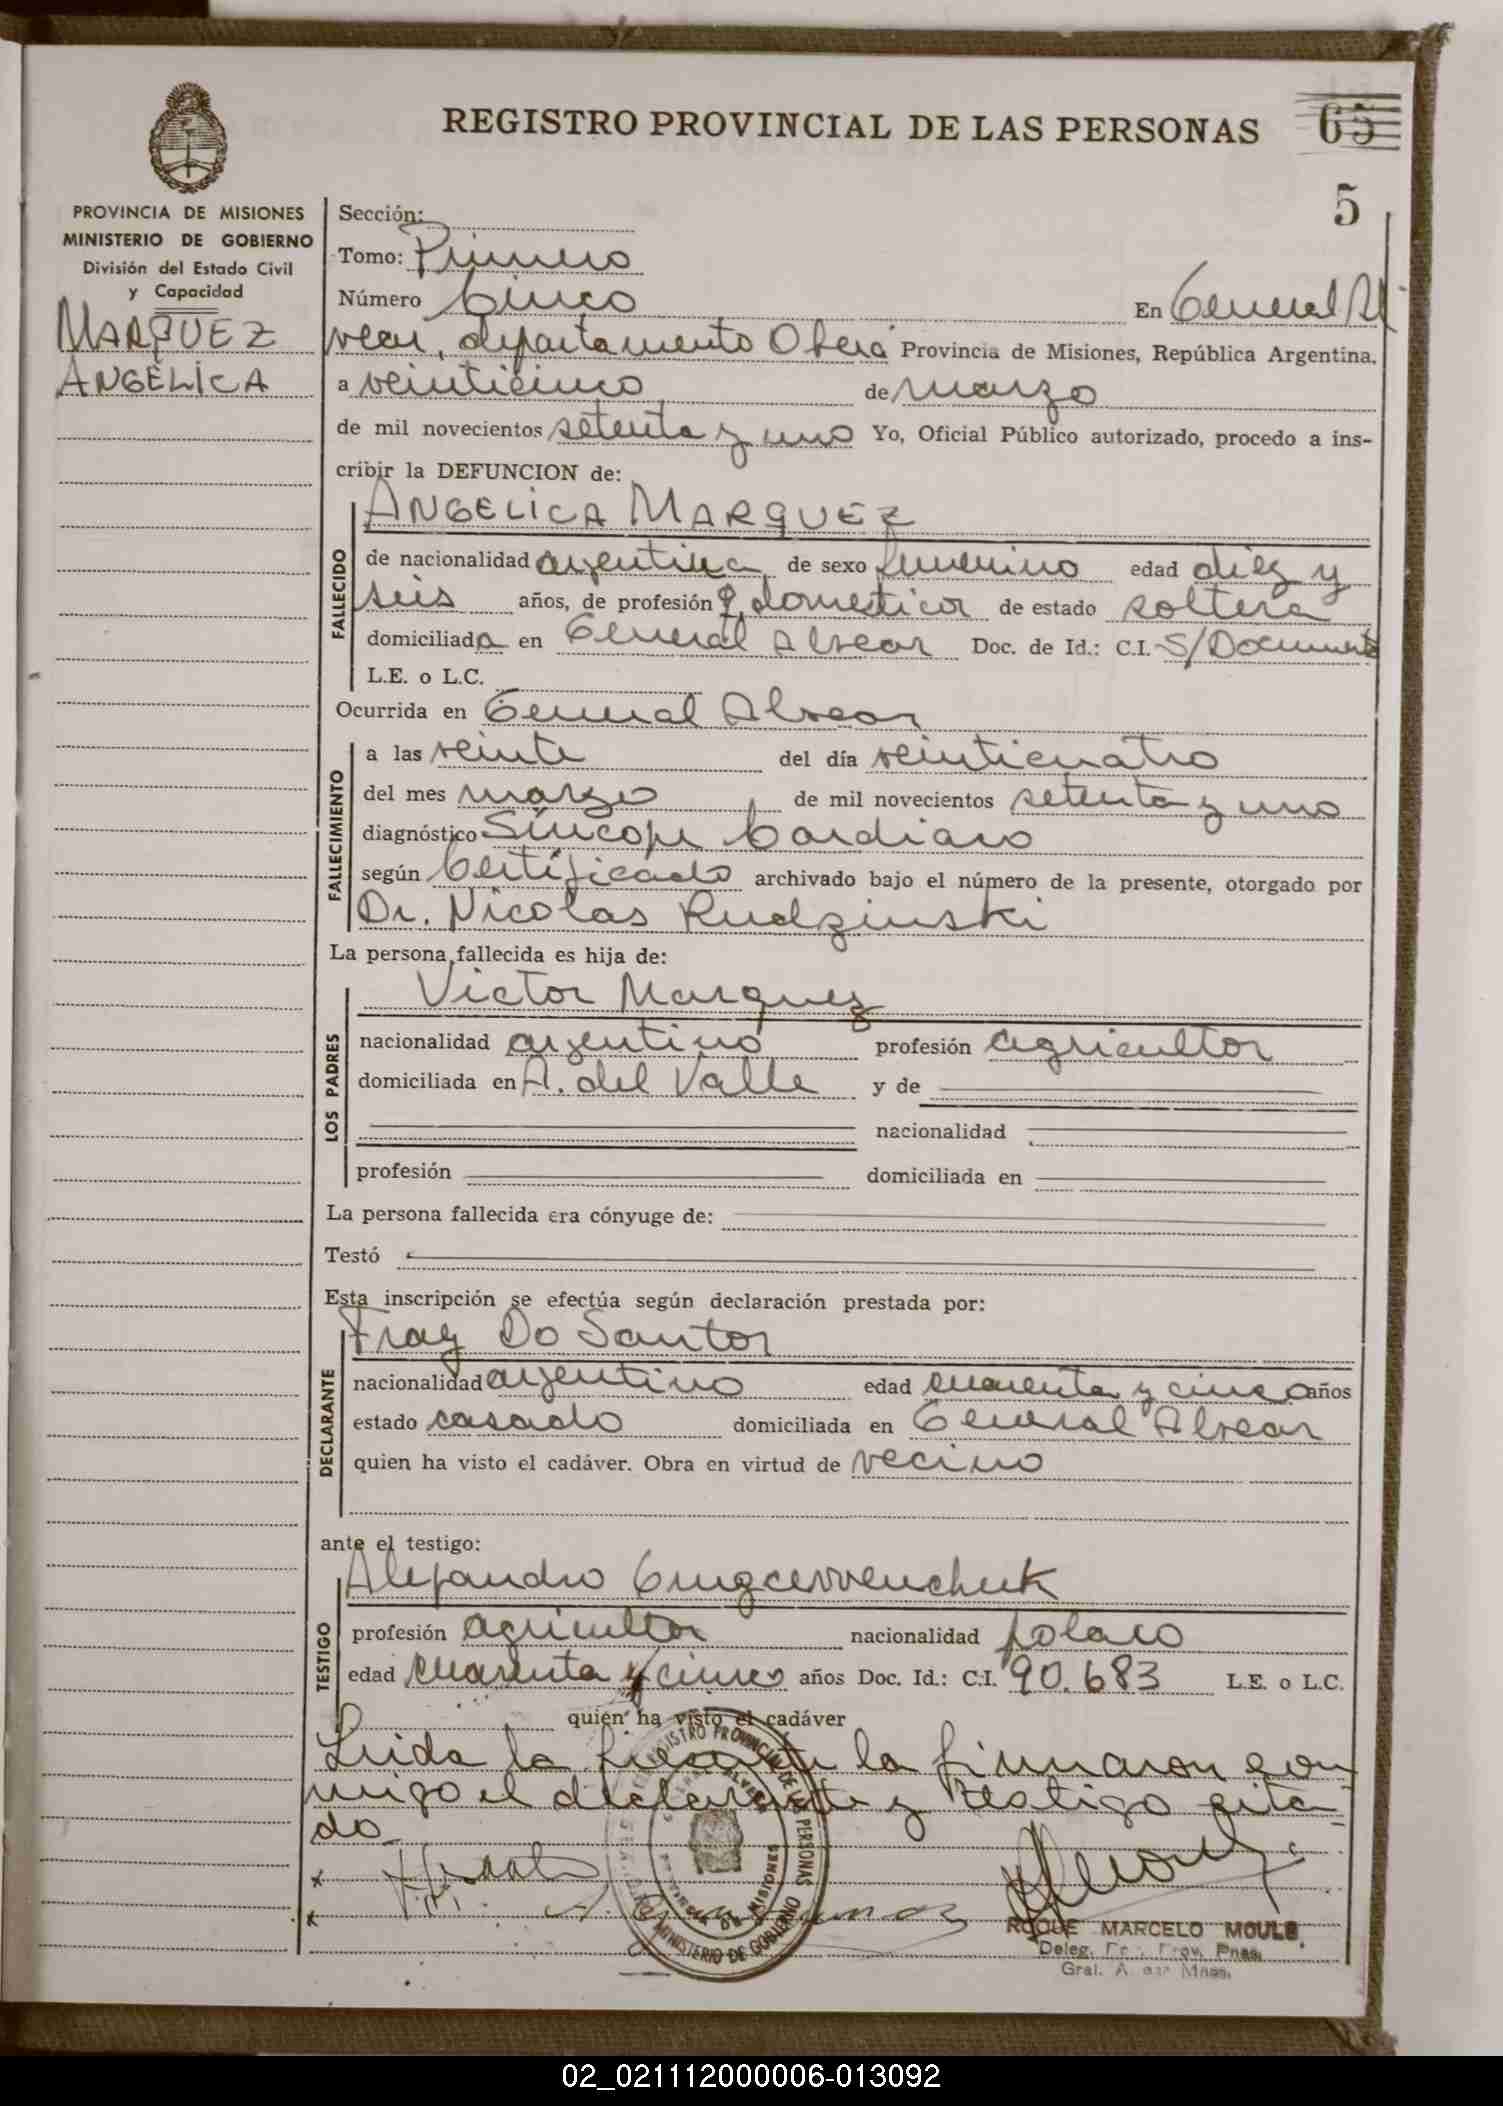 REGISTRO PROVINCIAL DE LAS PERSONAS
65
5
PROVINCIA DE MISIONES
MINISTERIO DE GOBIERNO
División del Estado Civil
y Capacidad
MARQUEZ
ANGELICA
Sección:
Tomo: Primero
Número Cinco En General Al-
vear, departamento Oberá Provincia de Misiones, República Argentina,
a veinticinco de marzo
de mil novecientos setenta y uno Yo, Oficial Público autorizado, procedo a ins-
cribir la DEFUNCION de:
ANGELICA MARQUEZ
FALLECIDO
de nacionalidad argentina de sexo femenino edad diez y
seis años, de profesión q. domesticos de estado soltera
domiciliada en General Alvear Doc. de Id.: C.I. S/Documento
L.E. o L.C.
Ocurrida en General Alvear
FALLECIMIENTO
a las veinte del día veinticuatro
del mes marzo de mil novecientos setenta y uno
diagnóstico Síncope Cardiaco
según Certificado archivado bajo el número de la presente, otorgado por
Dr. Nicolas Rudzinski
La persona fallecida es hija de:
LOS PADRES
Victor Marquez
nacionalidad argentino profesión agricultor
domiciliada en A. del Valle y de
nacionalidad
profesión domiciliada en
La persona fallecida era cónyuge de:
Testó
Esta inscripción se efectúa según declaración prestada por:
DECLARANTE
Fray Do Santos
nacionalidad argentino edad cuarenta y cinco años
estado casado domiciliada en General Alvear
quien ha visto el cadáver. Obra en virtud de vecino
ante el testigo:
TESTIGO
Alejandro
profesión agricultor nacionalidad polaco
edad cuarenta y cinco años Doc. Id.: C.I. 90.683 L.E. o L.C.
quien ha visto el cadáver
Leida la presente la firmaron con
migo el declarante y testigo cita-
do
REGISTRO PROVINCIAL DE LAS PERSONAS
MINISTERIO DE GOBIERNO
ROQUE MARCELO MOULE
Deleg. Prov. Pnas.
Gral. Mnes.
02_021112000006-013092